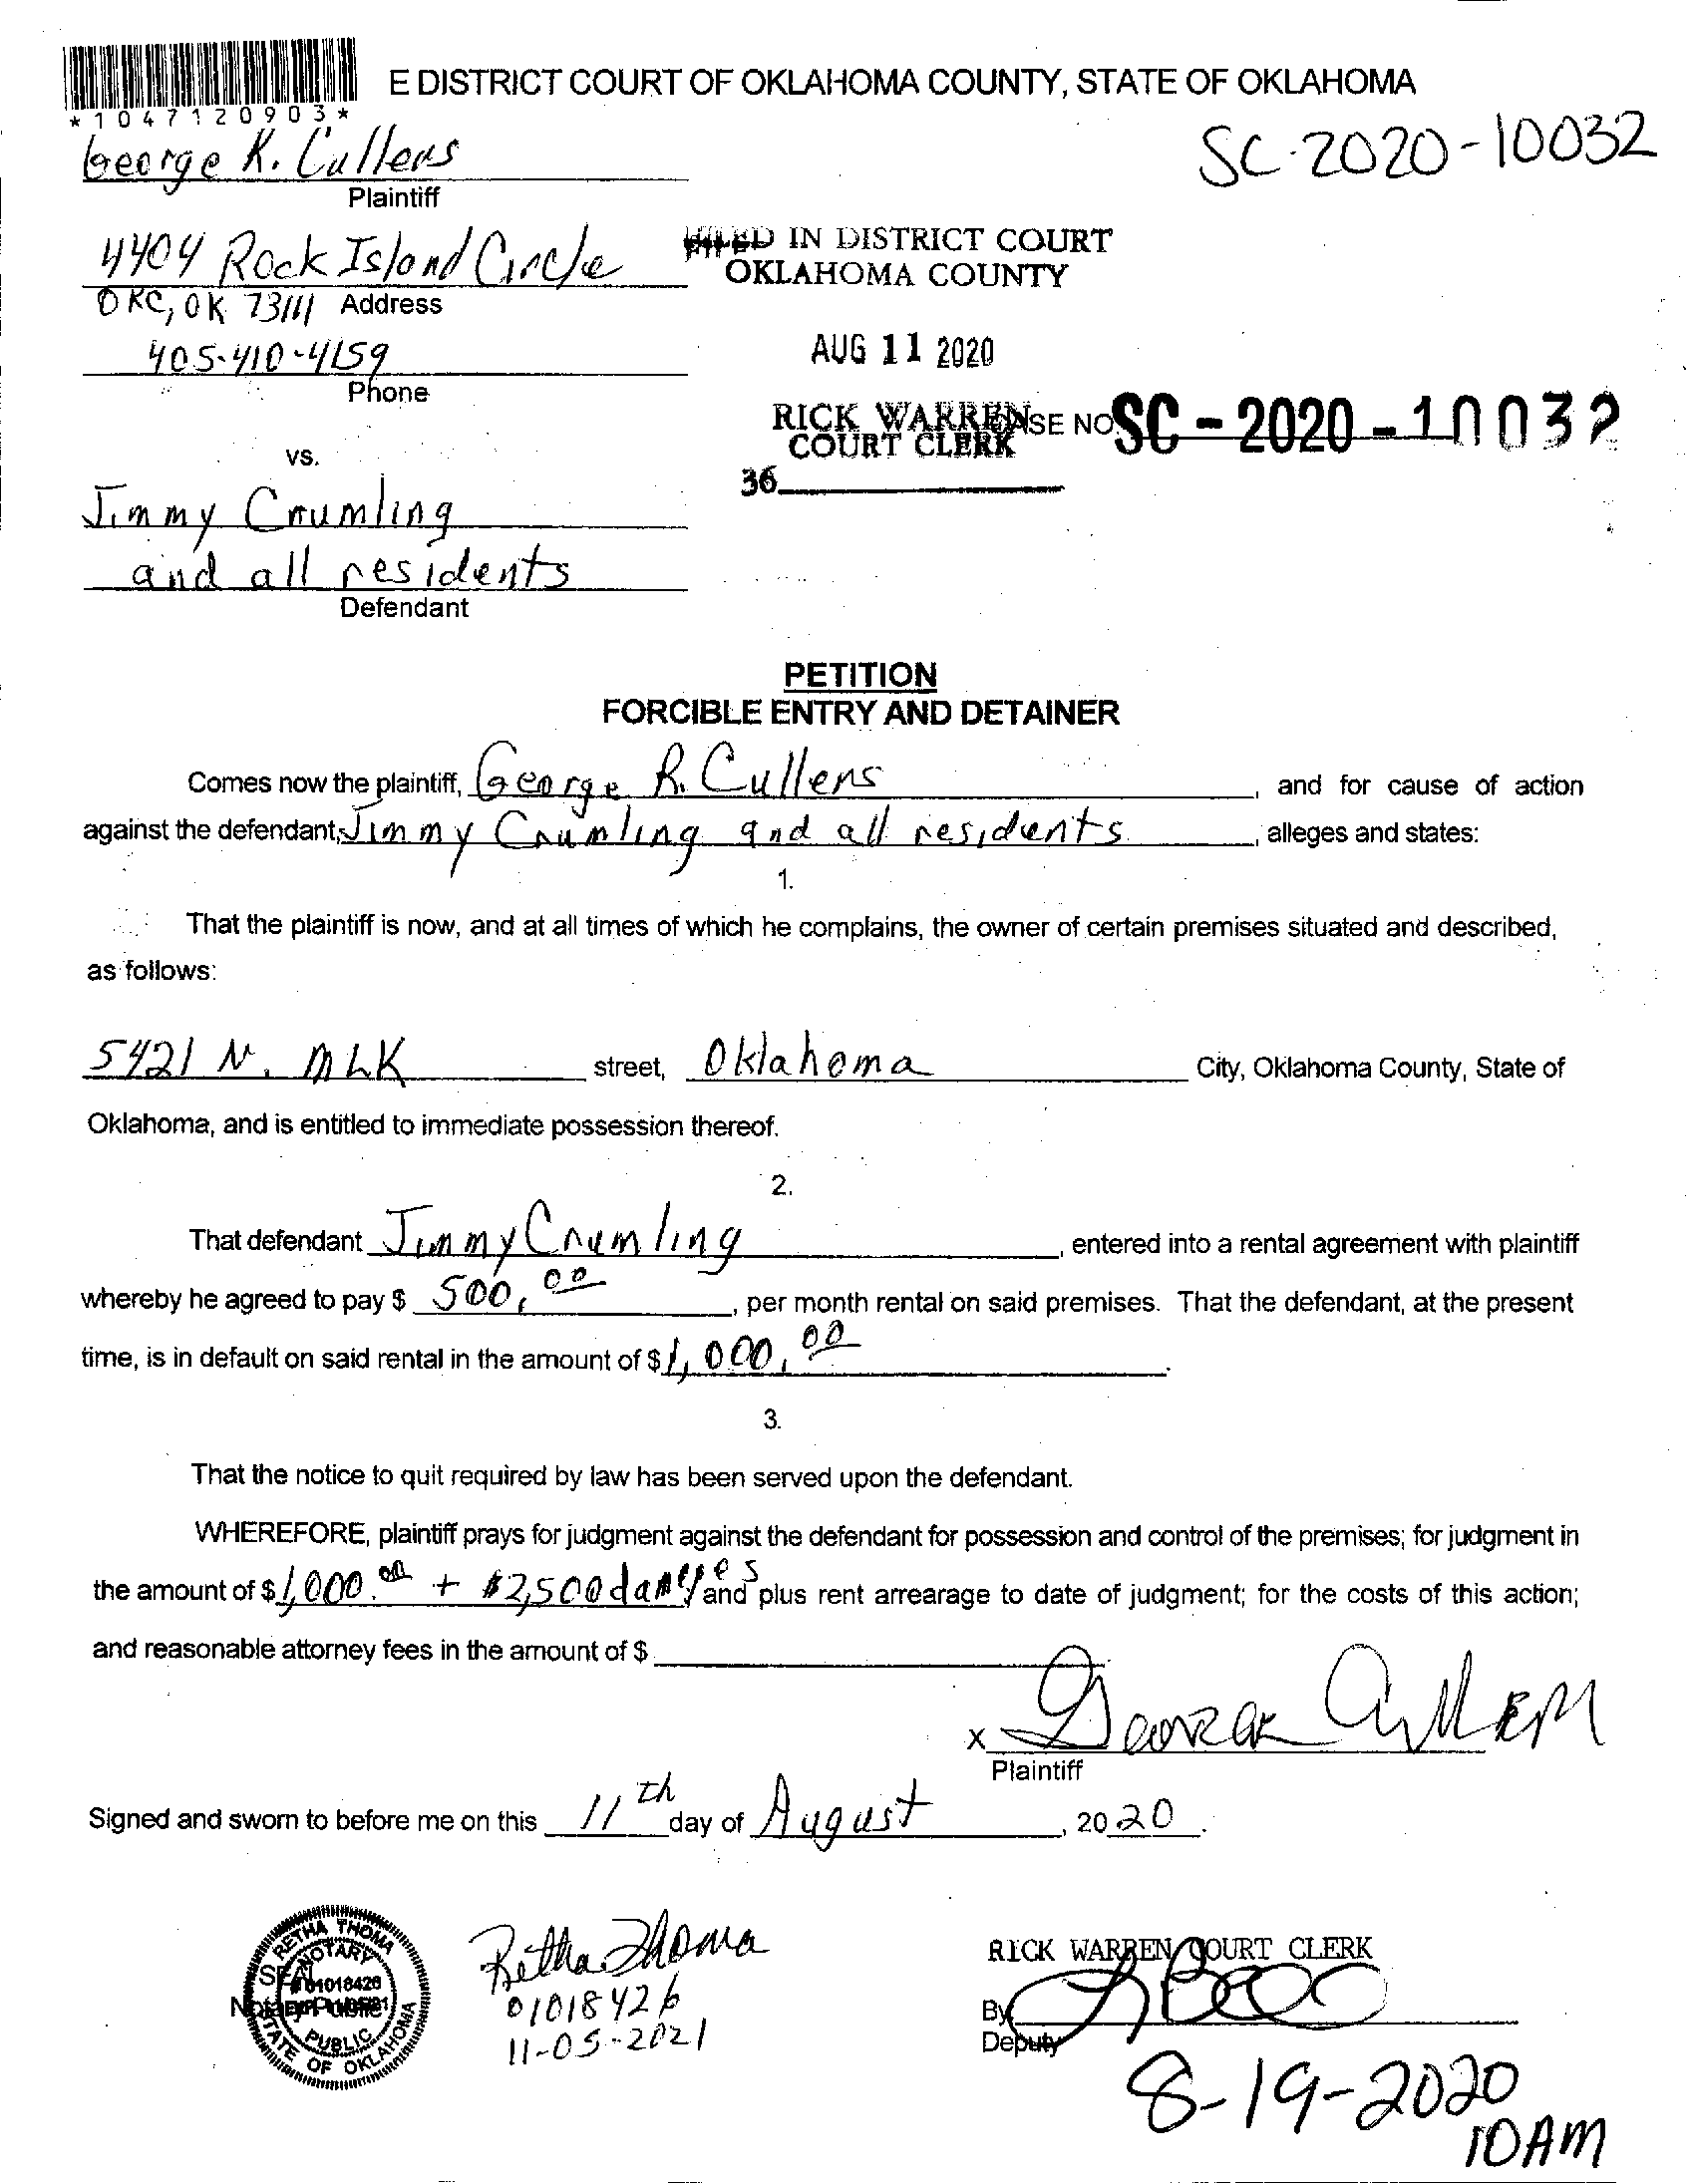 E DISTRICT COURT OF OKLAHOMA COUNTY, STATE OF OKLAHOMA
*1047120903*
George R. Cullens
SC-2020-10032
Plaintiff
4404 Rock Island Circle
FILED IN DISTRICT COURT
OKLAHOMA COUNTY
OKC, OK 73111 Address
405-410-4159
AUG 11 2020
Phone
RICK WARREN
COURT CLERK
CASE NO. SC-2020-10032
vs.
36
Jimmy Crumling
and all residents
Defendant
PETITION
FORCIBLE ENTRY AND DETAINER
Comes now the plaintiff, George R. Cullens, and for cause of action
against the defendant, Jimmy Crumling and all residents, alleges and states:
1.
That the plaintiff is now, and at all times of which he complains, the owner of certain premises situated and described,
as follows:
5421 N. MLK street, Oklahoma City, Oklahoma County, State of
Oklahoma, and is entitled to immediate possession thereof.
2.
That defendant Jimmy Crumling, entered into a rental agreement with plaintiff
whereby he agreed to pay $ 500.00, per month rental on said premises. That the defendant, at the present
time, is in default on said rental in the amount of $ 1,000.00.
3.
That the notice to quit required by law has been served upon the defendant.
WHEREFORE, plaintiff prays for judgment against the defendant for possession and control of the premises; for judgment in
the amount of $ 1,000.00 + $2,500 damages and plus rent arrearage to date of judgment; for the costs of this action;
and reasonable attorney fees in the amount of $
x George Cullens
Plaintiff
Signed and sworn to before me on this 11th day of August, 2020.
RETHA THOMA
NOTARY
SEAL
# 01018426
PUBLIC
STATE OF OKLAHOMA
Retha Thoma
01018426
11-05-2021
RICK WARREN COURT CLERK
By
Deputy
8-19-2020
10AM